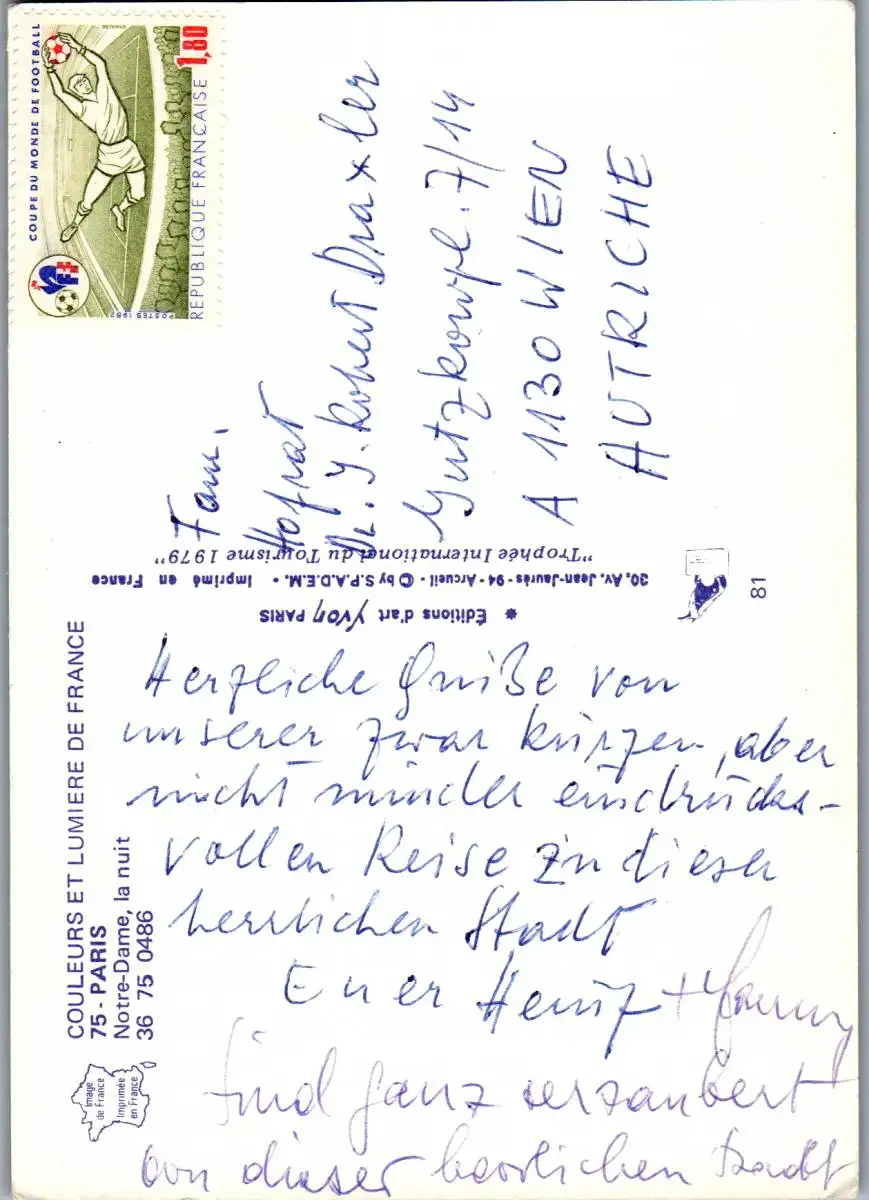 COULEURS ET LUMIERE DE FRANCE
75 - PARIS
Notre-Dame, la nuit
36 75 0486
Image
de France
Imprimée
en France
Herzliche Grüße von
unserer zwar kurzen, aber
nicht minder eindrucks-
vollen Reise zu dieser
herrlichen Stadt
Euer Heinz +
Sind ganz verzaubert
von dieser herrlichen Stadt
✷ Éditions d'art YVON PARIS
30, Av. Jean-Jaurès - 94 - Arcueil - © by S.P.A.D.E.M. • Imprimé en France
"Trophée International du Tourisme 1979"
81
COUPE DU MONDE DE FOOTBALL
1,80
RÉPUBLIQUE FRANÇAISE
POSTES 1982
FFF
Fam.
Hofrat
Dr. J. Robert Draxler
Gutzkowpl. 7/14
A 1130 WIEN
AUTRICHE